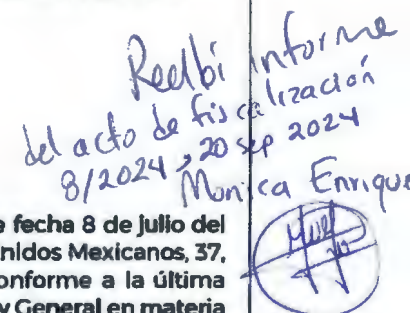 Recibí informe
del acto de fiscalización
8/2024, 20 sep 2024
Monica Enrique
e fecha 8 de julio del
nidos Mexicanos, 37,
onforme a la última
y General en materia